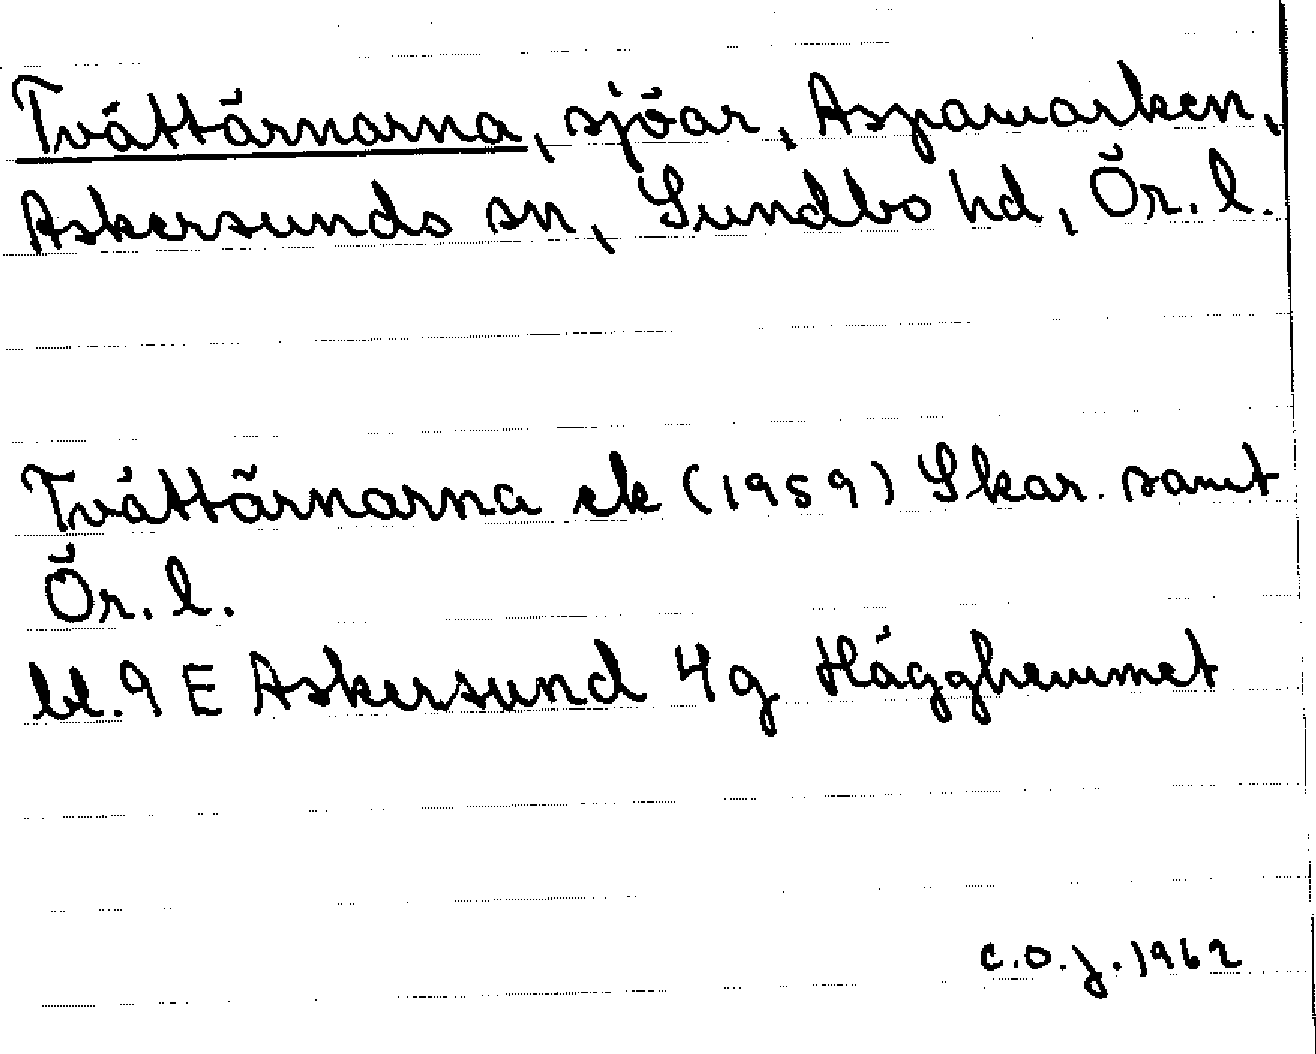 Tvättärnarna, sjöar, Aspamarken,
Askersunds sn, Sundbo hd, Ör. l.
Tvättärnarna ek (1959) Skar. samt
Ör. l.
bl. 9 E Askersund 4 g Hägghemmet
C.O.J. 1962